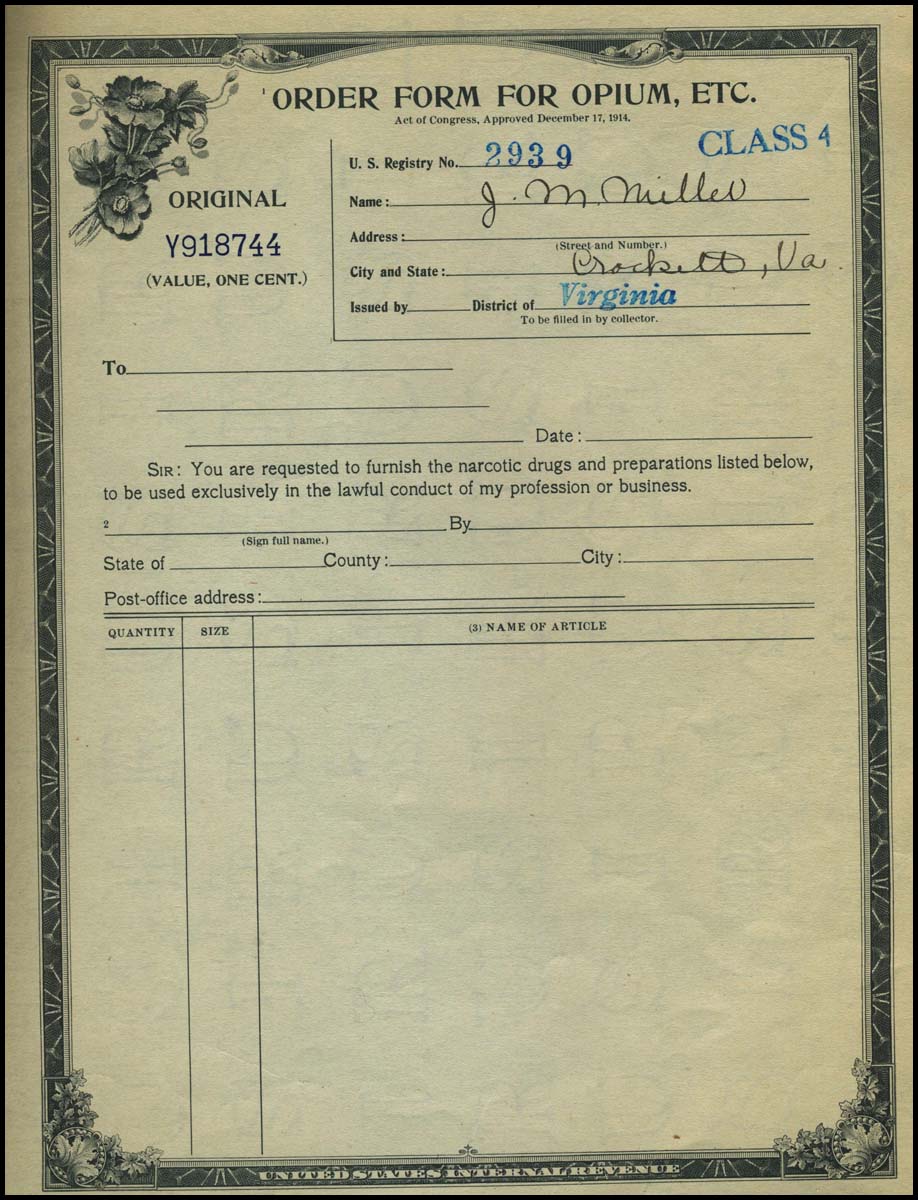 ORDER FORM FOR OPIUM, ETC.
Act of Congress, Approved December 17, 1914.
CLASS 4
U. S. Registry No. 2939
ORIGINAL
Name: J. M. Miller
Y918744
Address:
(Street and Number.)
(VALUE, ONE CENT.)
City and State: Crockett, Va.
Issued by District of Virginia
To be filled in by collector.
To
Date:
SIR: You are requested to furnish the narcotic drugs and preparations listed below,
to be used exclusively in the lawful conduct of my profession or business.
2 By
(Sign full name.)
State of County: City:
Post-office address:
QUANTITY SIZE (3) NAME OF ARTICLE
UNITED STATES INTERNAL REVENUE